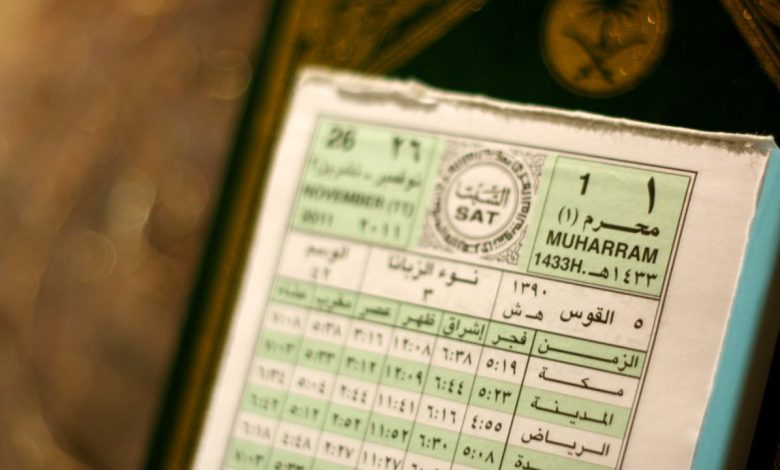 26 ٢٦
نوفمبر - تشرين٢
NOVEMBER (١١)
2011 ٢٠١١
السبت
SAT
1 ١
محرم (١)
MUHARRAM
1433H. ١٤٣٣هـ
٥ القوس ١٣٩٠ هـ ش
نوء الزبانا ٣
الوسم ٤٢
الزمن فجر إشراق ظهر عصر مغرب عشاء
مكة ٥:١٩ ٦:٣٨ ١٢:٠٨ ٣:١٦ ٥:٣٨ ٧:٠٨
المدينة ٥:٢٣ ٦:٤٤ ١٢:٠٩ ٣:١٢ ٥:٣٣ ٧:٠٣
الرياض ٤:٥٥ ٦:١٦ ١١:٤١ ٢:٤٤ ٥:٠٤ ٦:٣٤
٥:٠٨ ٦:٣٠ ١١:٥٢ ٢:٥٢ ٥:١٢ ٦:٤٢
٢:٢٧ ٤:٤٨ ٦:١٨
٧:٠٣